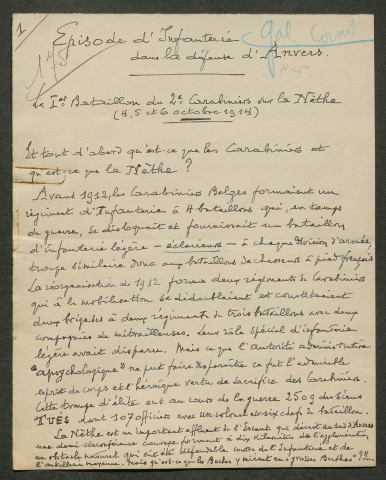 1
Episode d'Infanterie
dans la défense d'Anvers.
Gal
Le Ier Bataillon du 2e Carabiniers sur la Nèthe
(4, 5 et 6 octobre 1914)
Et tout d'abord qu'est-ce que les Carabiniers et
qu'est-ce que la Nèthe ?
Avant 1912, les Carabiniers Belges formaient un
régiment d'Infanterie à 4 bataillons qui, en temps
de guerre, se disloquait et fournissait un bataillon
d'infanterie légère - éclaireurs - à chaque Division d'armée,
troupe similaire donc aux bataillons de chasseurs à pied français
La réorganisation de 1912 forma deux régiments de Carabiniers
qui à la mobilisation se dédoublaient et constituaient
deux brigades à deux régiments de trois bataillons avec deux
compagnies de mitrailleuses. Leur rôle spécial d'infanterie
légère avait disparu. Mais ce que l'autorité administrative
"apsychologique" ne put faire disparaître ce fut l'admirable
esprit de corps et l'héroïque vertu de sacrifice des Carabiniers.
Cette troupe d'élite eut au cours de la guerre 2509 des siens
TUÉS dont 107 officiers avec un colonel et six chefs de bataillon.
La Nèthe est un important affluent de l'Escaut qui décrit au sud d'Anvers
une demi-circonférence couvrant formant à dix kilomètres de l'agglomération
un obstacle naturel qui eût été défendable contre de l'Infanterie et de
l'artillerie moyenne. Mais qu'est-ce que les Boches y mirent en "grosses Berthas"